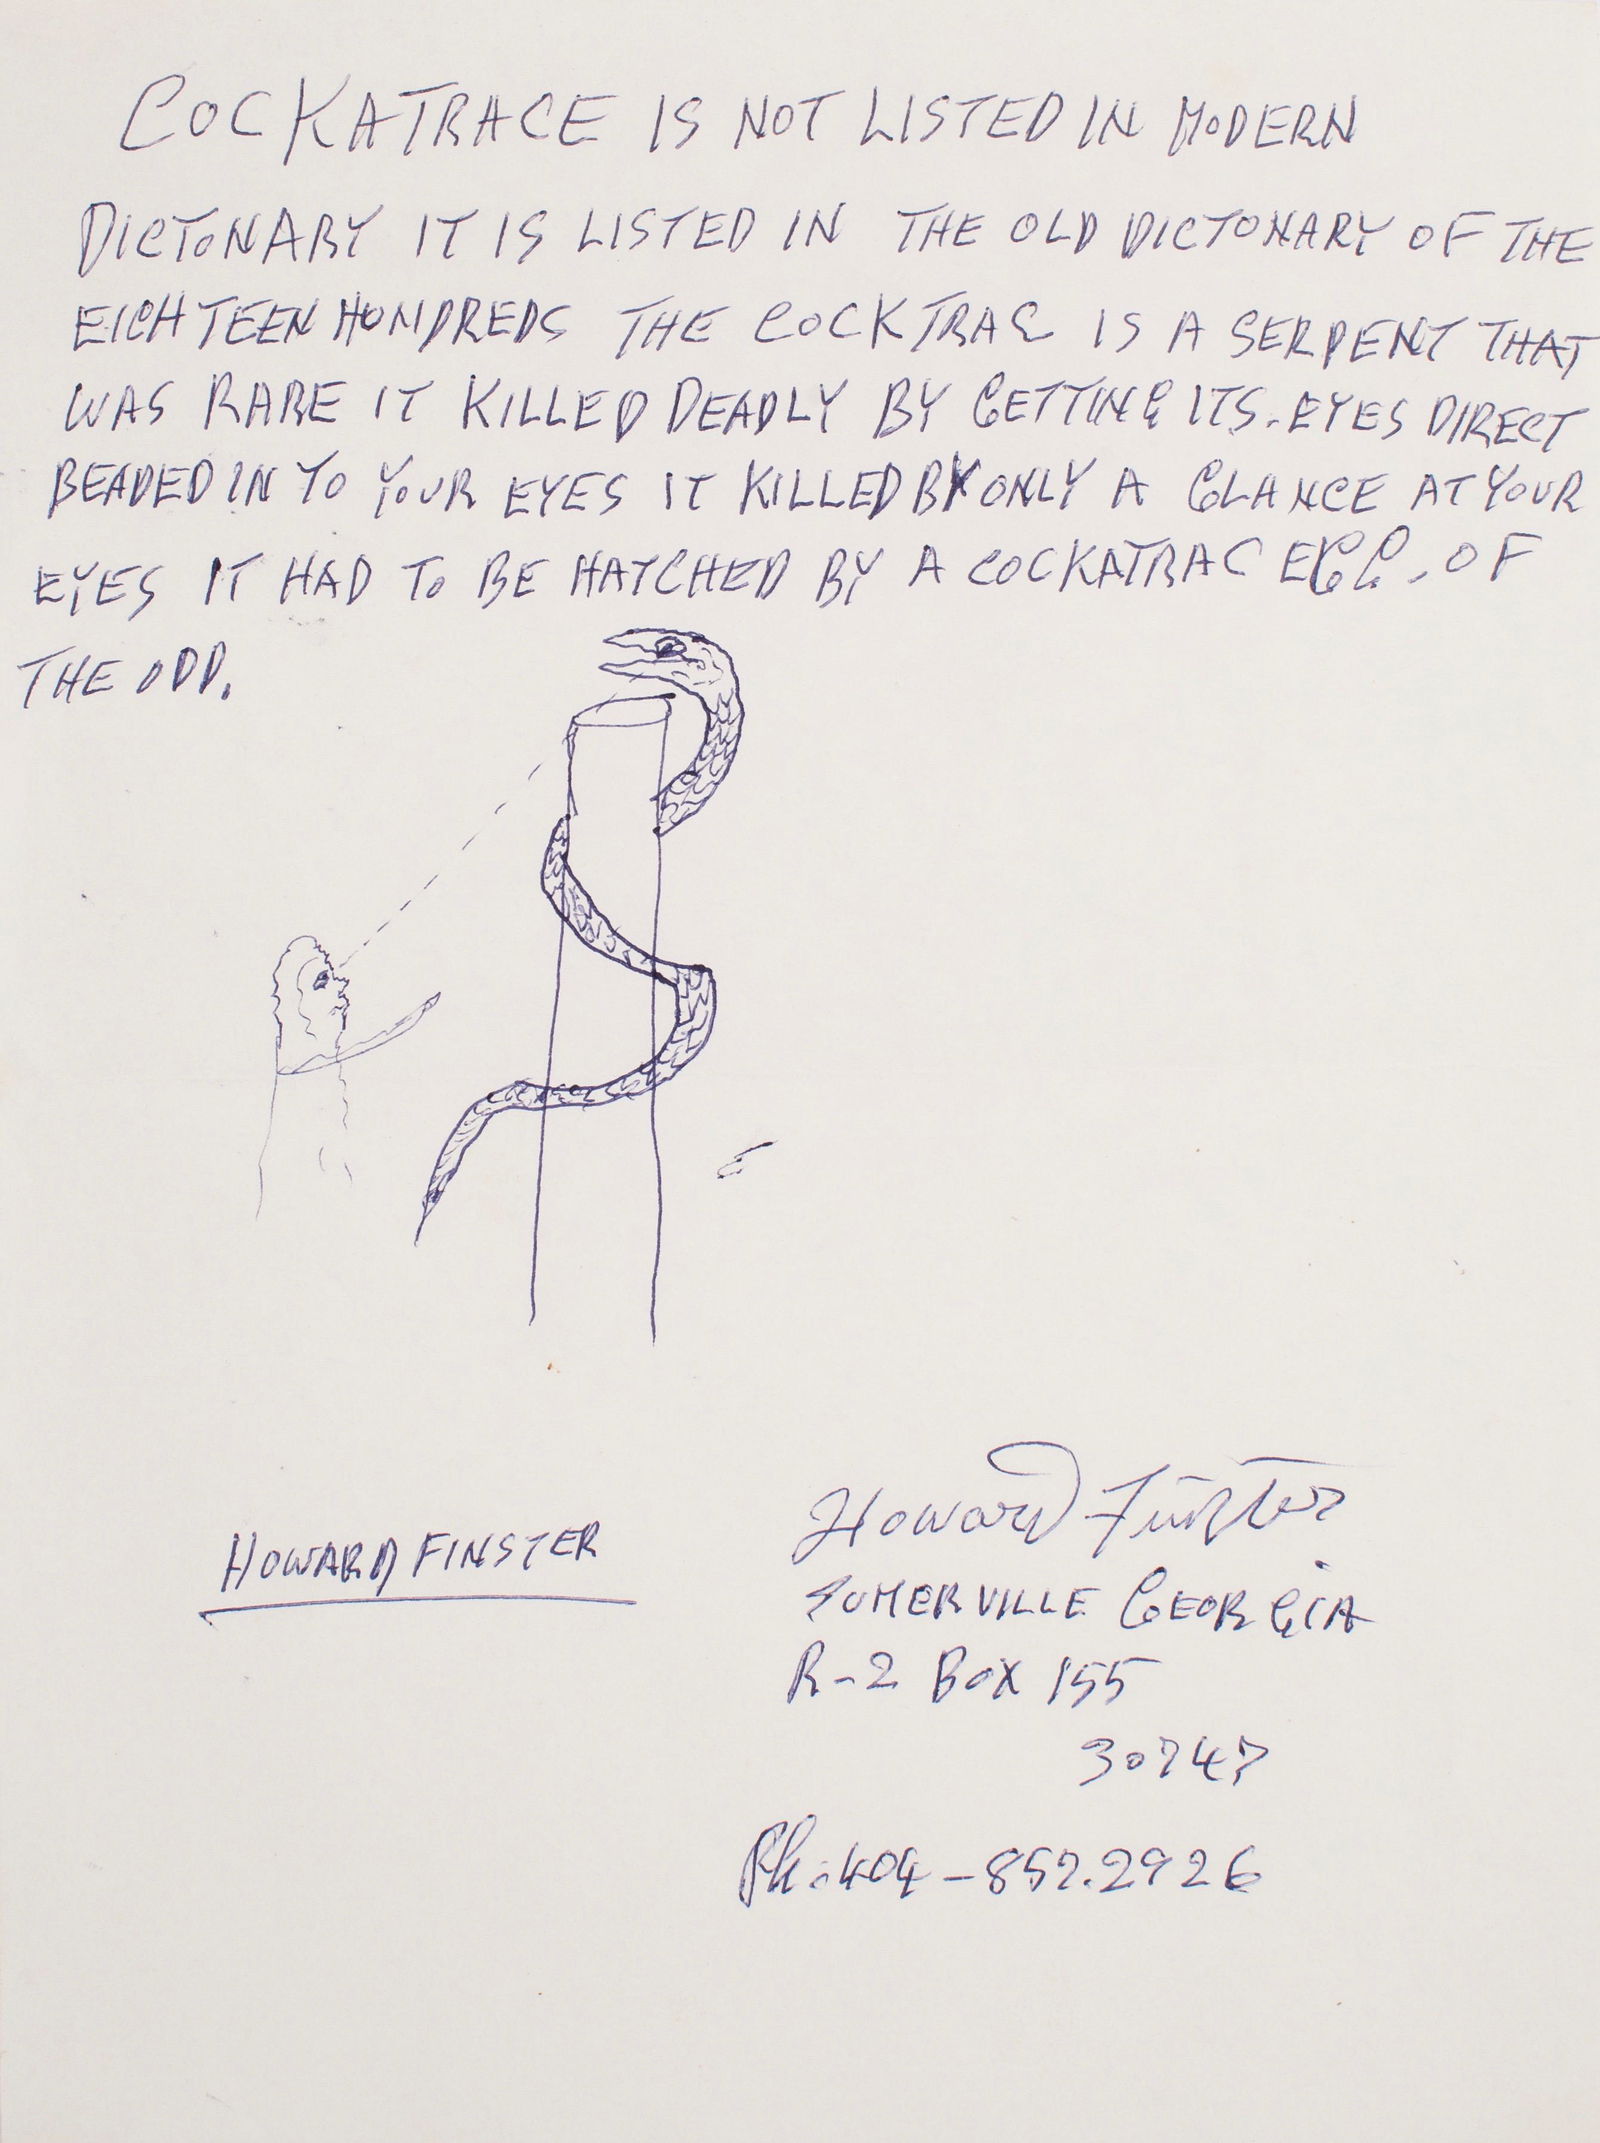 COCKATRACE IS NOT LISTED IN MODERN
DICTONARY IT IS LISTED IN THE OLD DICTONARY OF THE
EIGHTEEN HUNDREDS THE COCKTRAC IS A SERPENT THAT
WAS RARE IT KILLED DEADLY BY GETTING ITS. EYES DIRECT
BEADED IN TO YOUR EYES IT KILLED BY ONLY A GLANCE AT YOUR
EYES IT HAD TO BE HATCHED BY A COCKATRAC EGG. OF
THE ODD.
HOWARD FINSTER
Howard Finster
SUMERVILLE GEORGIA
R-2 BOX 155
30747
Ph: 404-857.2926